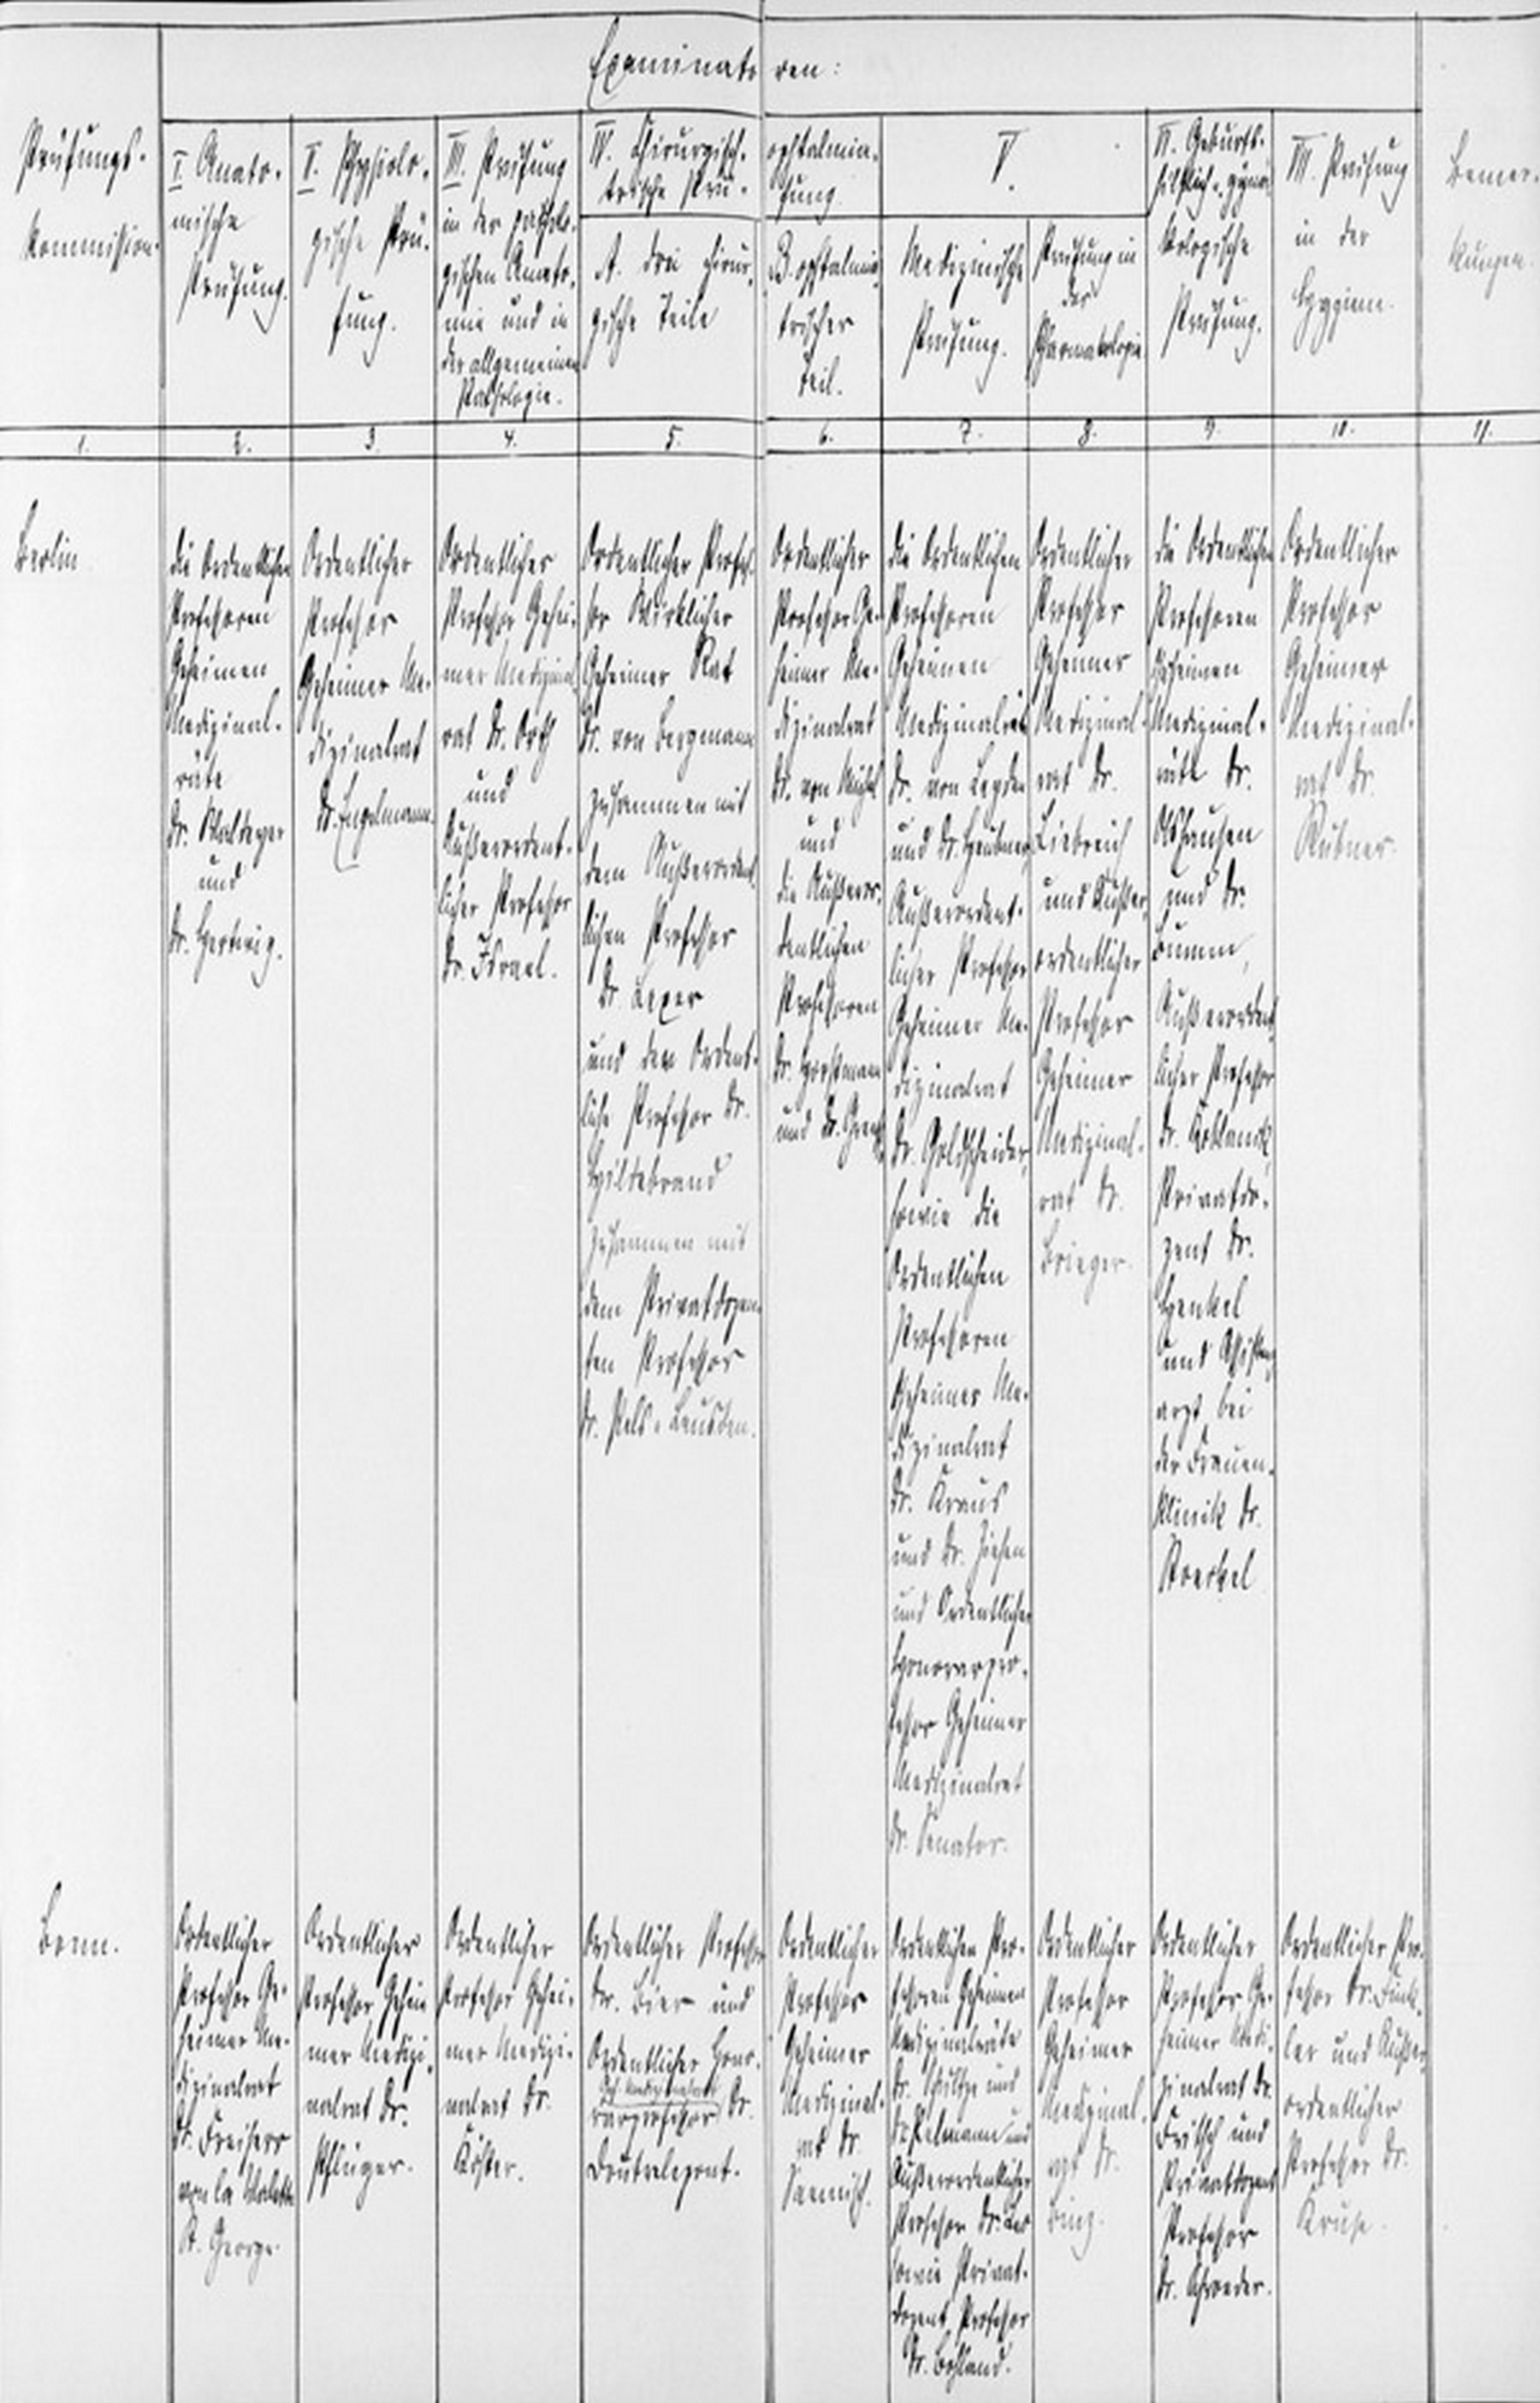 Examinatoren:
Prüfungs-
kommission.
I Anato-
mische
Prüfung.
II. Physiolo-
gische Prü-
fung.
III. Prüfung
in der patholo-
gischen Anato-
mie und in
der allgemeinen
Pathologie.
IV. Chirurgisch-
trische Prü-
A. drei chirur-
gische Teile
ophtalmia-
fung.
B. ophtalmia-
trischer
Teil.
V.
Medizinische
Prüfung.
Prüfung in
der
Pharmakologie
VI. Geburts-
hilflich-gynä-
kologische
Prüfung.
VII. Prüfung
in der
Hygiene.
Bemer-
kungen.
1.
2.
3.
4.
5.
6.
7.
8.
9.
10.
11.
Berlin
die Ordentlichen
Professoren
Geheimen
Medizinal-
räte
Dr. Waldeyer
und
Dr. Hertwig.
Ordentlicher
Professor
Geheimer Me-
dizinalrat
Dr. Engelmann.
Ordentlicher
Professor Gehei-
mer Medizinal-
rat Dr. Orth
und
Außerordent-
licher Professor
Dr. Israel.
Ordentlicher Profes-
sor Wirklicher
Geheimer Rat
Dr. von Bergmann
zusammen mit
dem Außerordent-
lichen Professor
Dr. Lexer
und der Ordent-
liche Professor Dr.
Hildebrand
zusammen mit
dem Privatdozen-
ten Professor
Dr. Pels-Leusden.
Ordentlicher
Professor Ge-
heimer Me-
dizinalrat
Dr. von Michel
und
die Außeror-
dentlichen
Professoren
Dr. Horstmann
und Dr. Greeff
die Ordentlichen
Professoren
Geheimen
Medizinalräte
Dr. von Leyden
und Dr. Heubner,
Außerordent-
licher Professor
Geheimer Me-
dizinalrat
Dr. Goldscheider,
sowie die
Ordentlichen
Professoren
Geheimer Me-
dizinalrat
Dr. Kraus
und Dr. Ziehen
und Ordentlicher
Honorarpro-
fessor Geheimer
Medizinalrat
Dr. Senator.
Ordentlicher
Professor
Geheimer
Medizinal-
rat Dr.
Liebreich
und Außer-
ordentlicher
Professor
Geheimer
Medizinal-
rat Dr.
Brieger.
die Ordentlichen
Professoren
Geheimen
Medizinal-
räte Dr.
Olshausen
und Dr.
Bumm,
Außerordent-
licher Professor
Dr. Koblanck,
Privatdo-
zent Dr.
Henkel
und Assistenz-
arzt bei
der Frauen-
klinik Dr.
Stoeckel
Ordentlicher
Professor
Geheimer
Medizinal-
rat Dr.
Rubner.
Bonn.
Ordentlicher
Professor Ge-
heimer Me-
dizinalrat
Dr. Freiherr
von la Valette
St. George
Ordentlicher
Professor Gehei-
mer Medizi-
nalrat Dr.
Pflüger.
Ordentlicher
Professor Gehei-
mer Medizi-
nalrat Dr.
Köster.
Ordentlicher Professor
Dr. Bier und
Ordentlicher Hono-
Geh. Medizinalrat
rarprofessor Dr.
Doutrelepont.
Ordentlicher
Professor
Geheimer
Medizinal-
rat Dr.
Saemisch.
Ordentlichen Pro-
fessoren Geheimen
Medizinalräte
Dr. Schultze und
Dr. Pelmann und
Außerordentlicher
Professor Dr. Leo
sowie Privat-
dozent Professor
Dr. Bohland.
Ordentlicher
Professor
Geheimer
Medizinal-
rat Dr.
Binz.
Ordentlicher
Professor Ge-
heimer Medi-
zinalrat Dr.
Fritsch und
Privatdozent
Professor
Dr. Schroeder.
Ordentlicher Pro-
fessor Dr. Fink-
ler und Außer-
ordentlicher
Professor Dr.
Kruse.